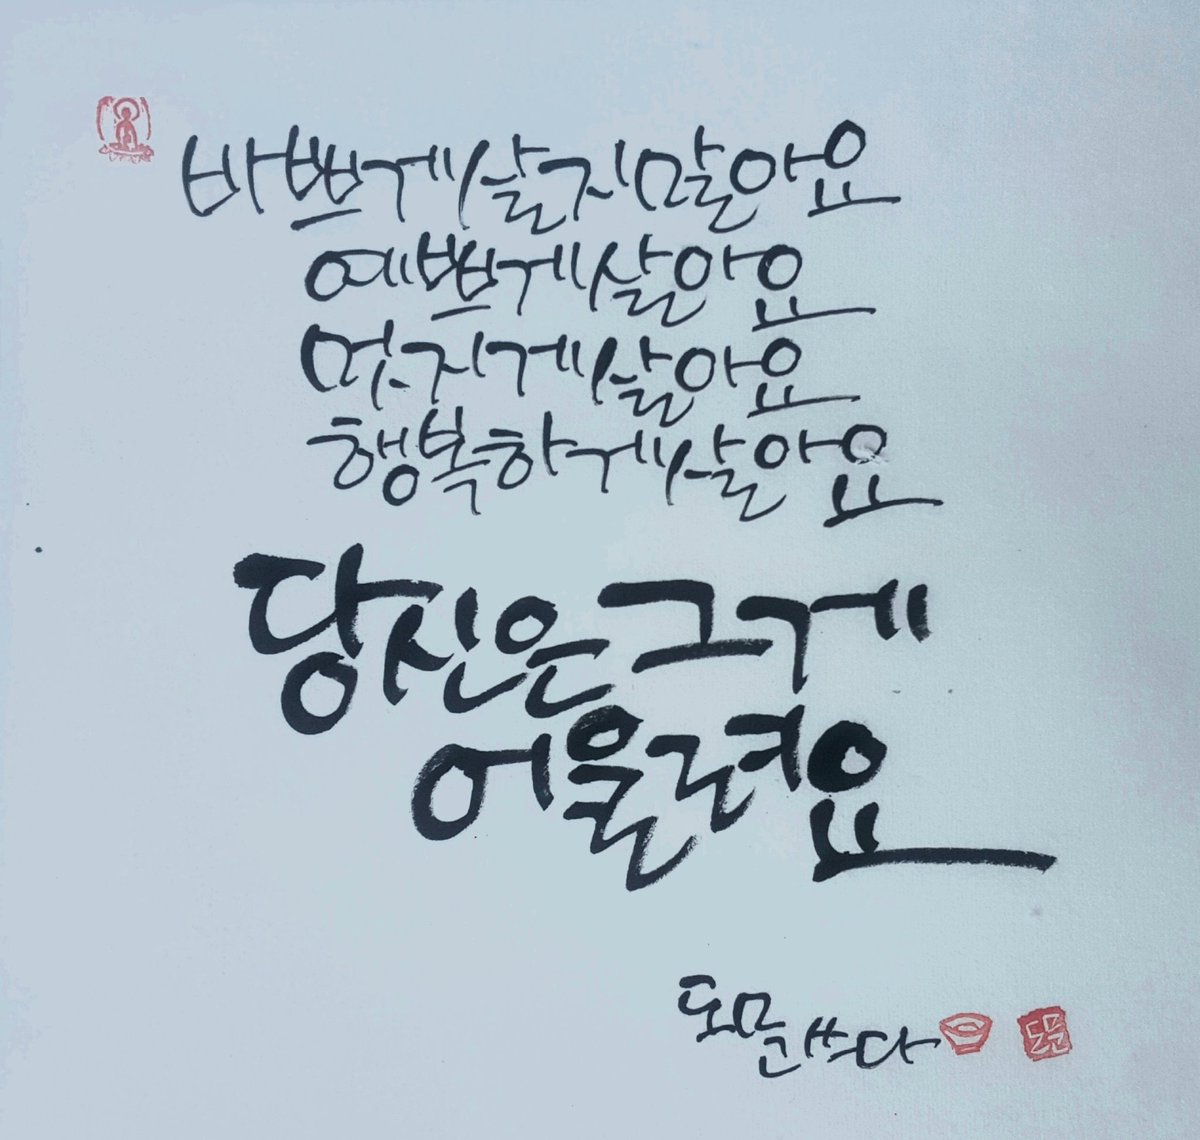 바쁘게살지말아요
예쁘게살아요
멋지게살아요
행복하게살아요
당신은그게
어울려요
도문쓰다
도문